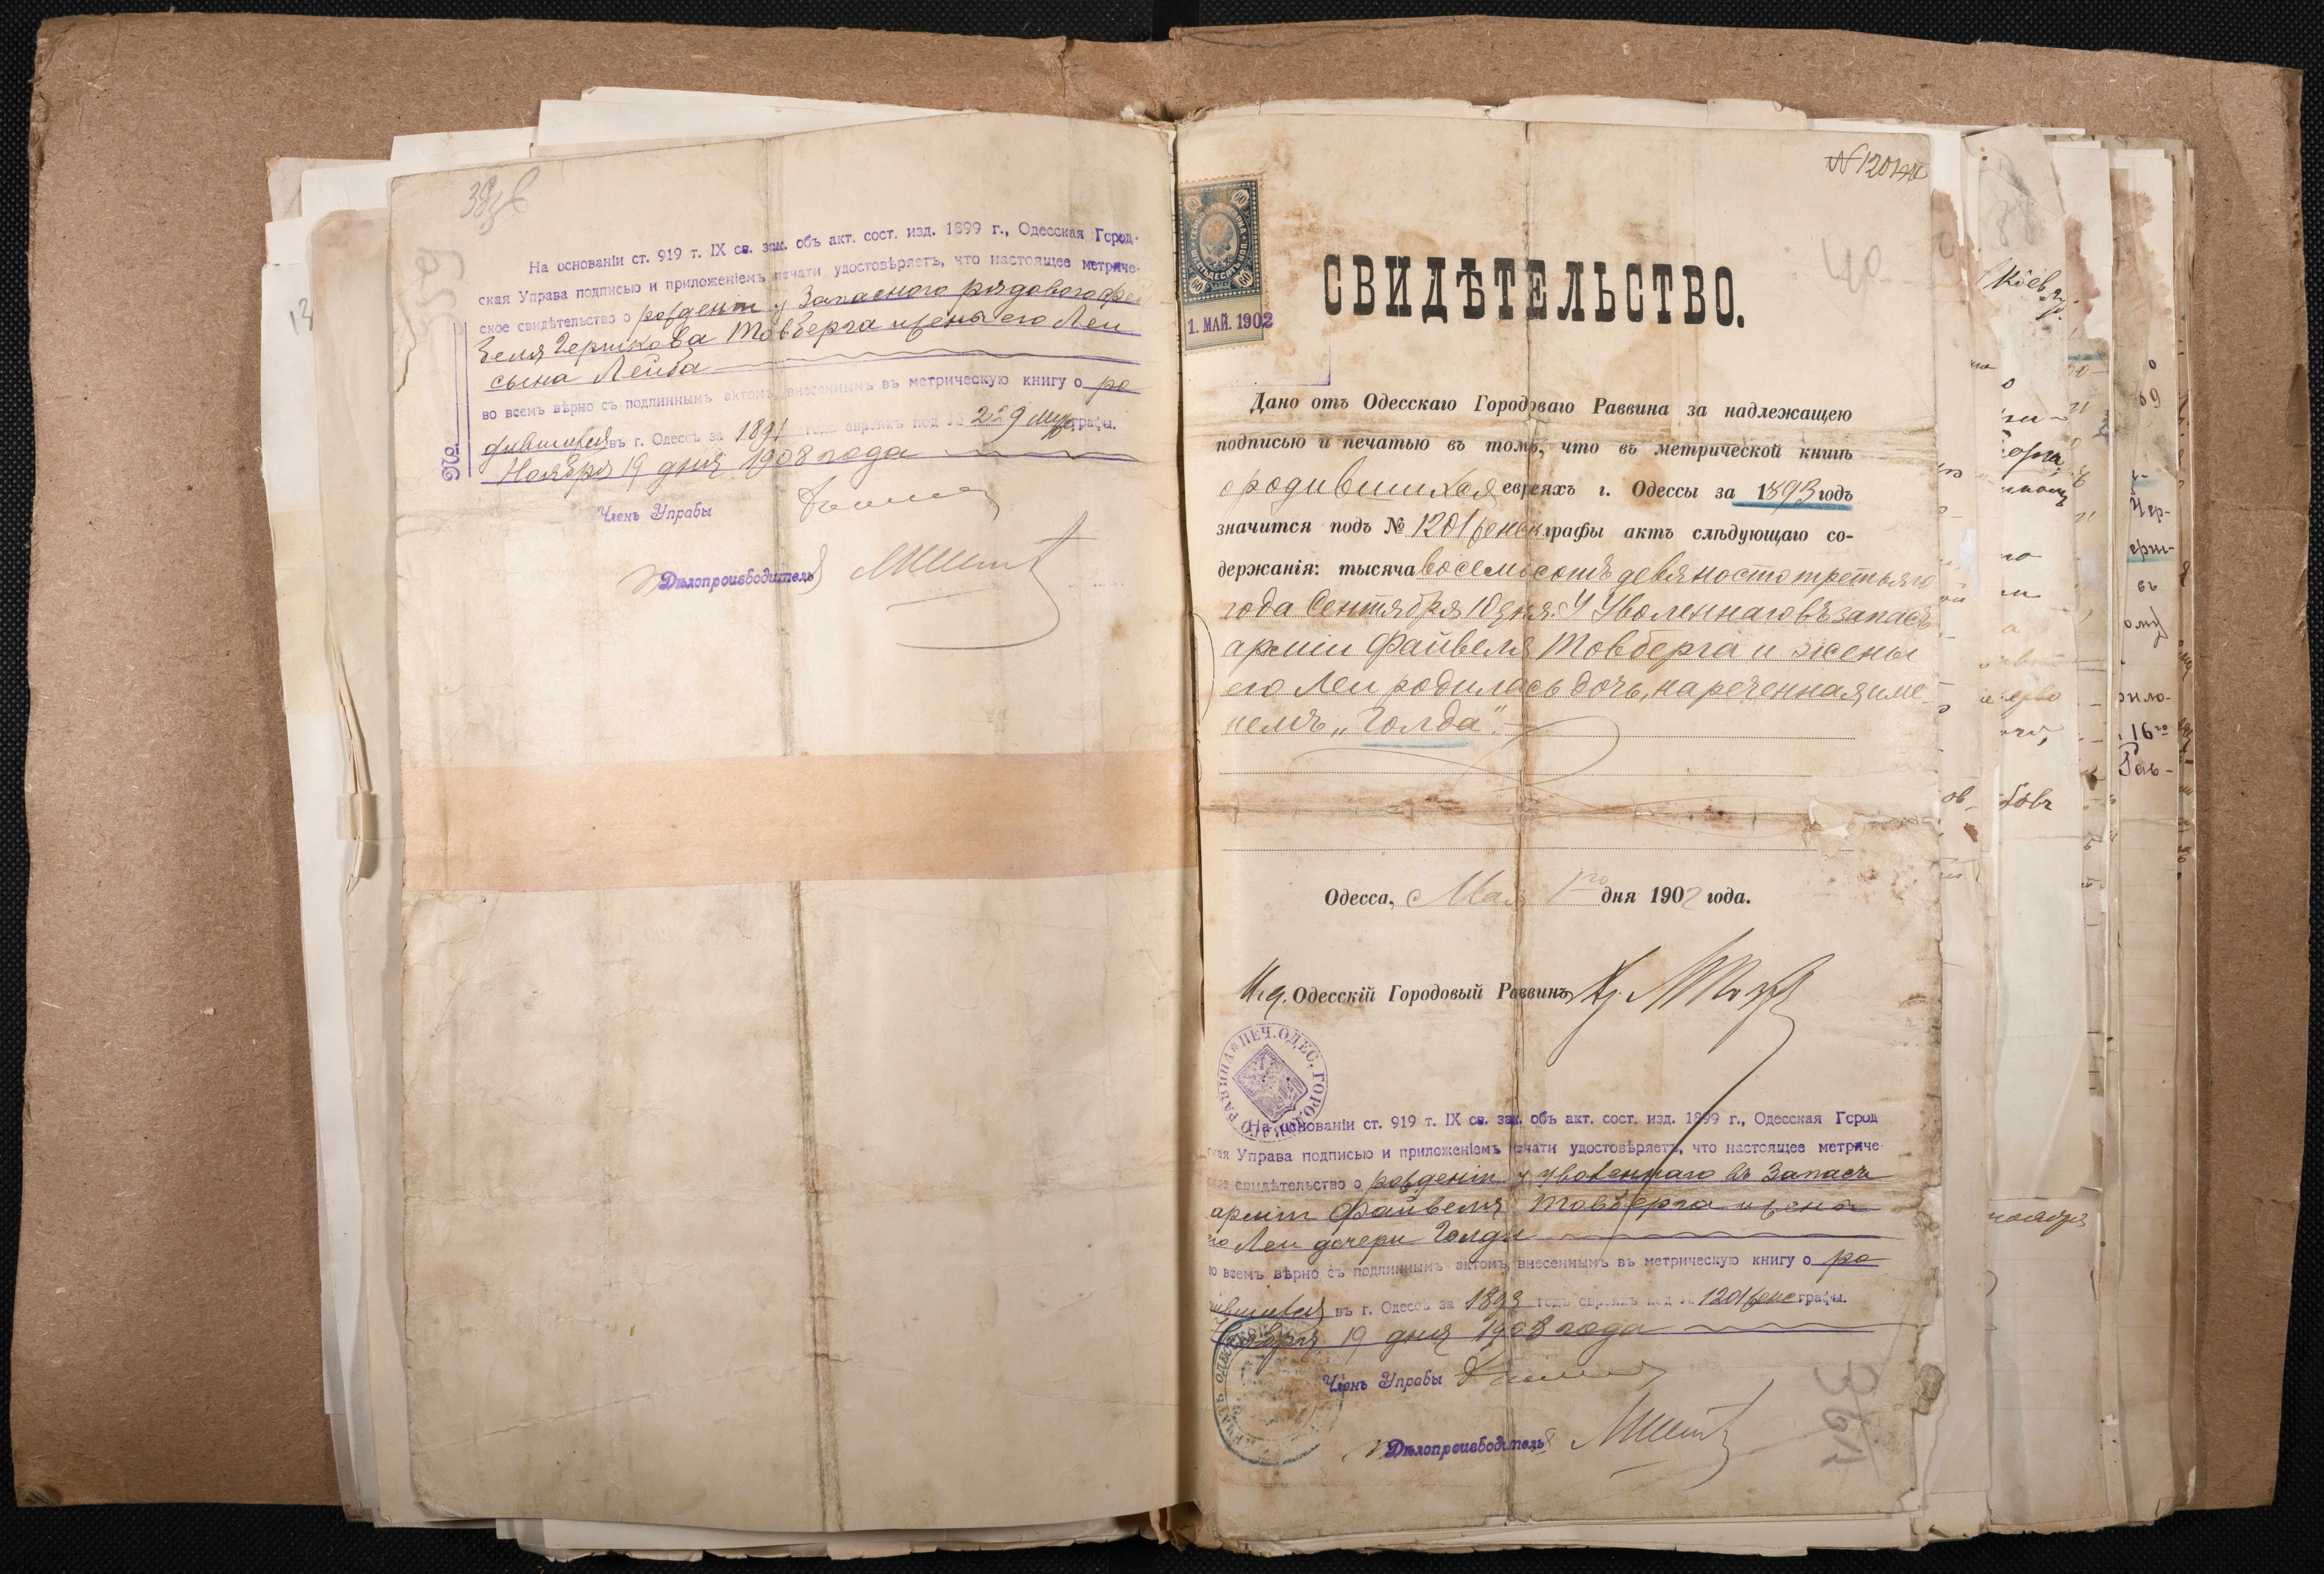 На основаніи ст. 919 т. IX св. зак. объ акт. сост. изд. 1899 г., Одесская Город-
ская Управа подписью и приложеніемъ печати удостовѣряетъ, что настоящее метриче-
ское свидѣтельство о рожденіи у Запаснаго рядового
Гершкова Товберга и жены его Леи
сына Лейба
во всемъ вѣрно съ подлиннымъ актомъ, внесеннымъ въ метрическую книгу о ро
дившихся въ г. Одессѣ за года евреяхъ под № муж. графы.
Ноября 19 дня 1908 года
№
Членъ Управы
Дѣлопроизводитель
№ 1201
60 60
ШЕСТЬДЕСЯТЪ КОП.
60 60
1. МАЙ. 1902
40
СВИДѢТЕЛЬСТВО.
Дано отъ Одесскаго Городоваго Раввина за надлежащею
подписью и печатью въ томъ, что въ метрической книгѣ
о родившихся евреяхъ г. Одессы за 1893 годъ
значится подъ № 1201 женск. графы актъ слѣдующаго со-
держанія: тысяча восемьсотъ девяносто третьяго
года Сентября 10 дня. У Уволеннаго въ запасъ
арміи Файвеля Товберга и жены
его Леи родилась дочь, нареченная име-
немъ „Голда".
Одесса, Мая 1го дня 1902 года.
И. д. Одесскій Городовый Раввинъ
ПЕЧ. ОДЕС. ГОРОДСКАГО РАВВИНА
На основаніи ст. 919 т. IX св. зак. объ акт. сост. изд. 1899 г., Одесская Город
ская Управа подписью и приложеніемъ печати удостовѣряетъ, что настоящее метриче-
ское свидѣтельство о рожденіи у уволеннаго въ Запасъ
арміи Файвеля Товберга и жены
его Леи дочери Голды
во всемъ вѣрно съ подлиннымъ актомъ, внесеннымъ въ метрическую книгу о ро
дившихся въ г. Одессѣ за 1893 годъ евреяхъ под № 1201 женс графы.
Ноября 19 дня 1908 года
Членъ Управы
Дѣлопроизводитель